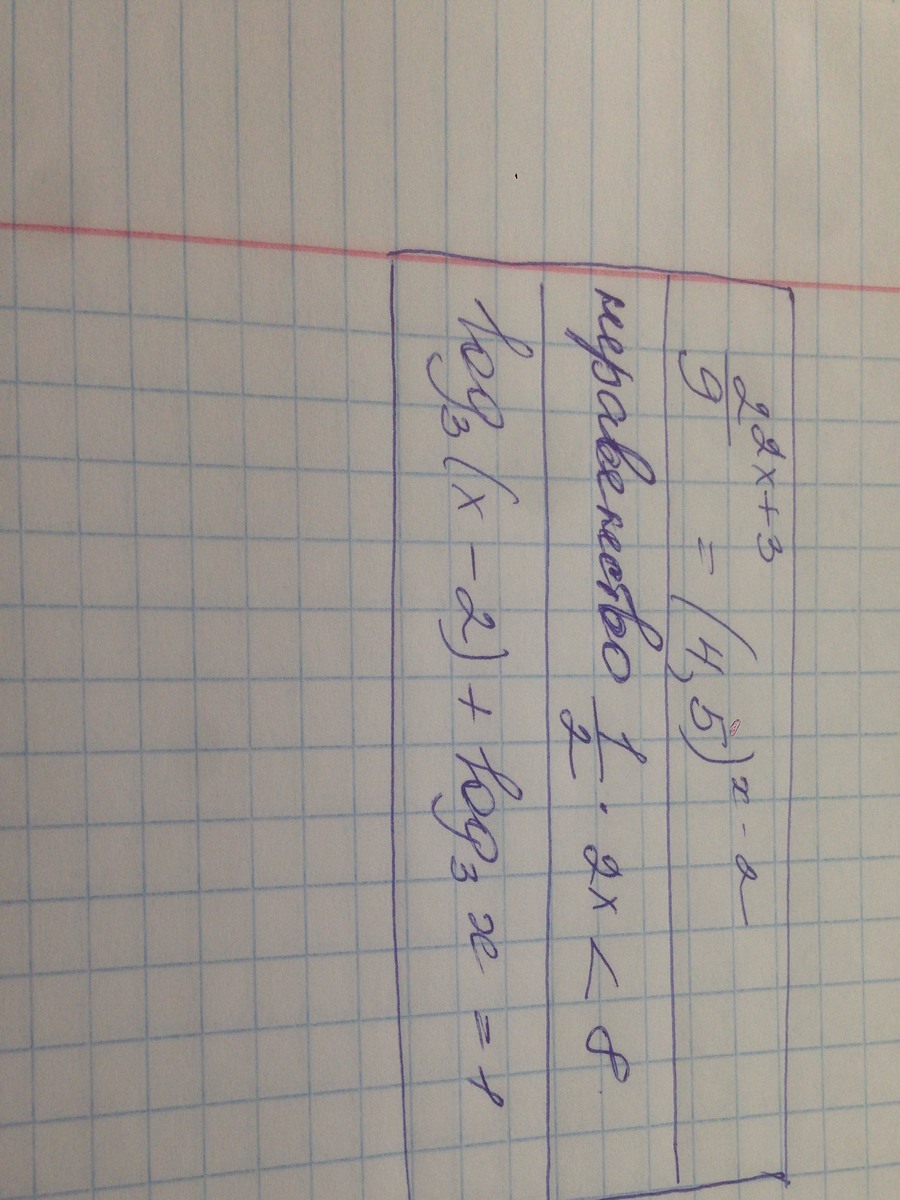 2/9 ^2x+3 = (4,5)^x-2
неравенство 1/2 · 2x < 8
log₃(x-2) + log₃ x = 1